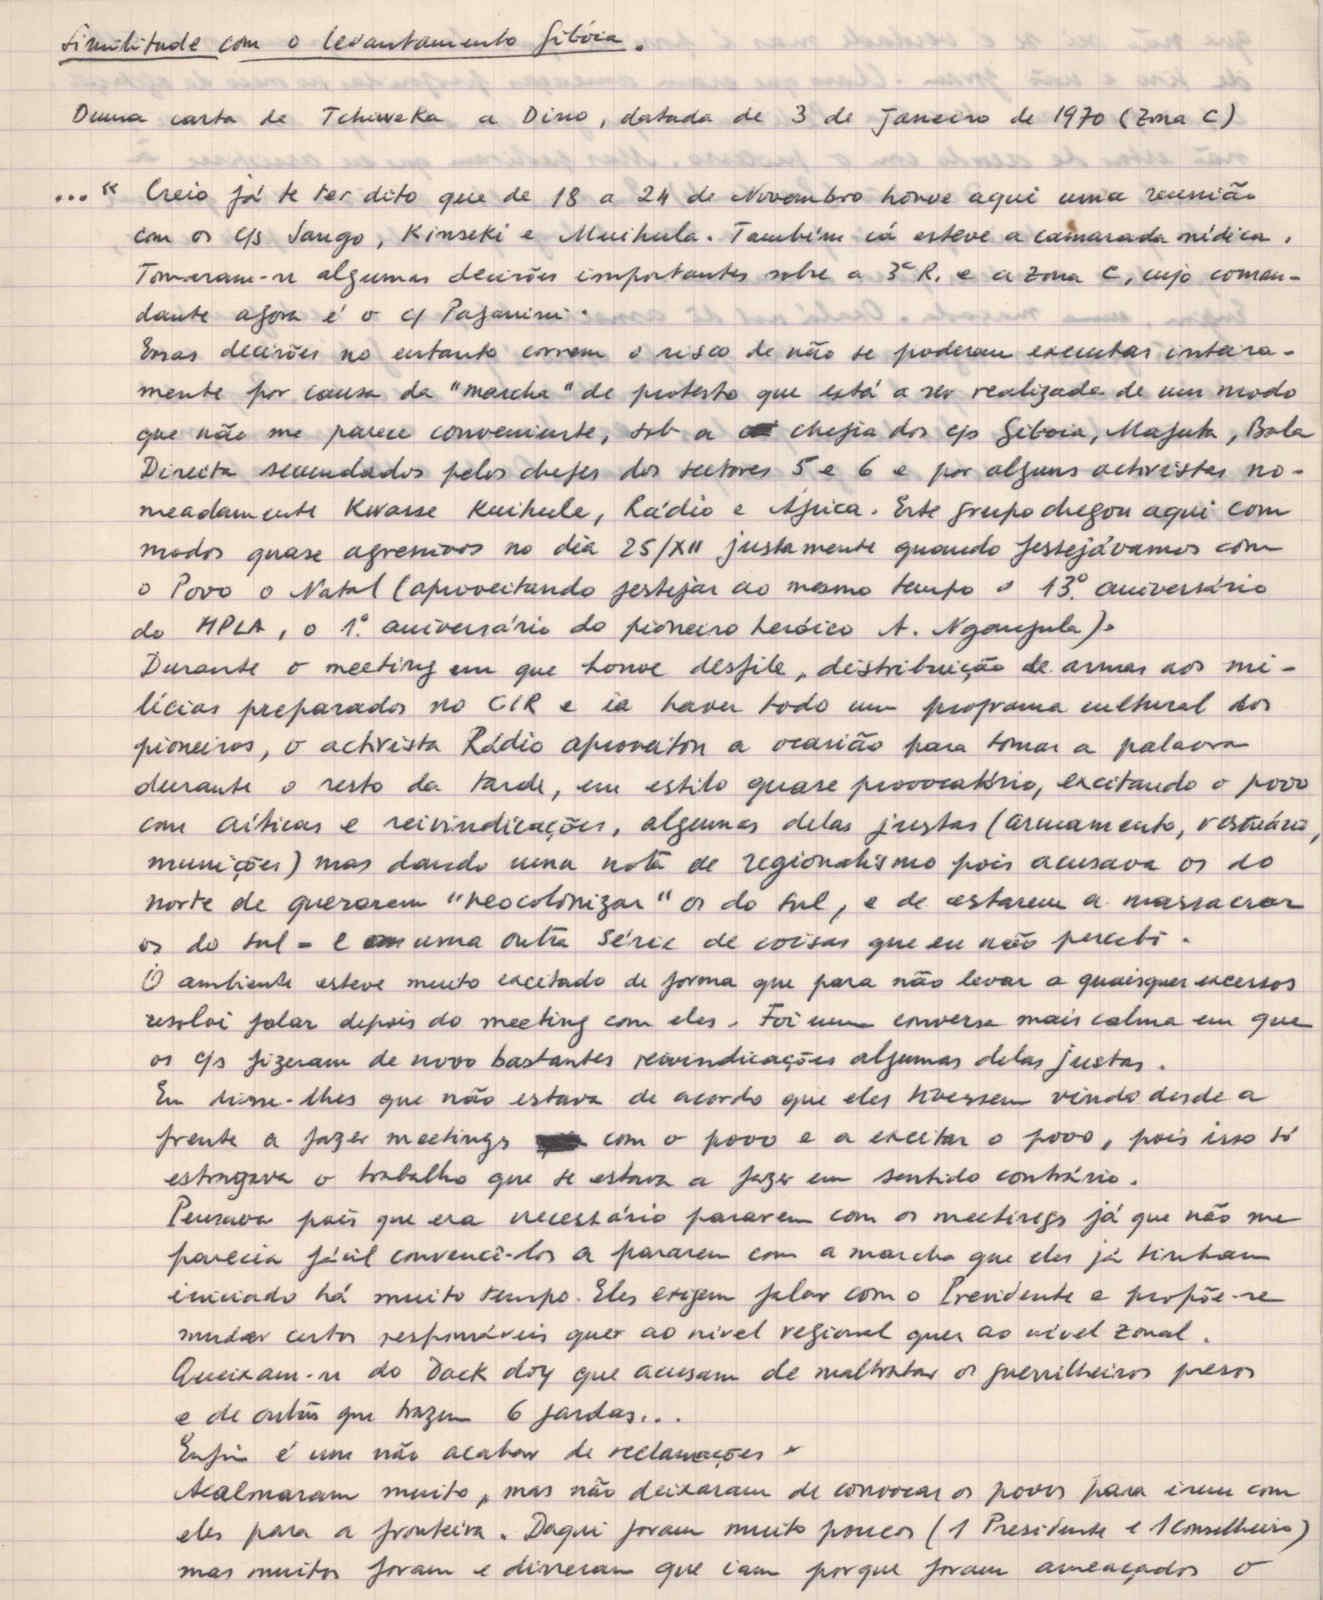 Similitude com o levantamento Gibóia.
Duma carta de Tchiweka a Dino, datada de 3 de Janeiro de 1970 (Zona C)
..." Creio já te ter dito que de 18 a 24 de Novembro houve aqui uma reunião
com os c/s Jango, Kinseki e Muihula. Também cá esteve a camarada médica.
Tomaram-se algumas decisões importantes sobre a 3ª R. e a Zona C, cujo coman-
dante agora é o c/ Paganini.
Essas decisões no entanto correm o risco de não se poderem executar inteira-
mente por causa da "marcha" de protesto que está a ser realizada de um modo
que não me parece conveniente, sob a chefia dos c/s Giboia, Mafuta, Bala
Direita secundados pelos chefes dos sectores 5 e 6 e por alguns activistas no-
meadamente Kwasse Kuihule, Rádio e África. Este grupo chegou aqui com
modos quase agressivos no dia 25/XII justamente quando festejávamos com
o Povo o Natal (aproveitando festejar ao mesmo tempo o 13º. aniversário
do MPLA, o 1º. aniversário do pioneiro heróico A. Ngangula).
Durante o meeting em que houve desfile, distribuição de armas aos mi-
lícias preparados no CIR e ia haver todo um programa cultural dos
pioneiros, o activista Rádio aproveitou a ocasião para tomar a palavra
durante o resto da tarde, em estilo quase provocatório, excitando o povo
com críticas e reivindicações, algumas delas justas (armamento, vestuário,
munições) mas dando uma nota de regionalismo pois acusava os do
norte de quererem "neocolonizar" os do sul, e de estarem a massacrar
os do sul - e uma outra série de coisas que eu não percebi.
O ambiente esteve muito excitado de forma que para não levar a quaisquer excessos
resolvi falar depois do meeting com eles. Foi uma conversa mais calma em que
os c/s fizeram de novo bastantes reivindicações algumas delas justas.
Eu disse-lhes que não estava de acordo que eles tivessem vindo desde a
frente a fazer meetings com o povo e a excitar o povo, pois isso só
estragava o trabalho que se estava a fazer em sentido contrário.
Pensava pois que era necessário pararem com os meetings já que não me
parecia fácil convencê-los a pararem com a marcha que eles já tinham
iniciado há muito tempo. Eles exigem falar com o Presidente e propõe-se
mudar certos responsáveis quer ao nível regional quer ao nível zonal.
Queixam-se do Dack doy que acusam de maltratar os guerrilheiros presos
e de outros que trazem 6 fardas...
Enfim é um não acabar de reclamações.
Acalmaram muito, mas não deixaram de convocar os povos para irem com
eles para a fronteira. Daqui foram muito poucos (1 Presidente e 1 Conselheiro)
mas muitos foram e disseram que iam porque foram ameaçados o